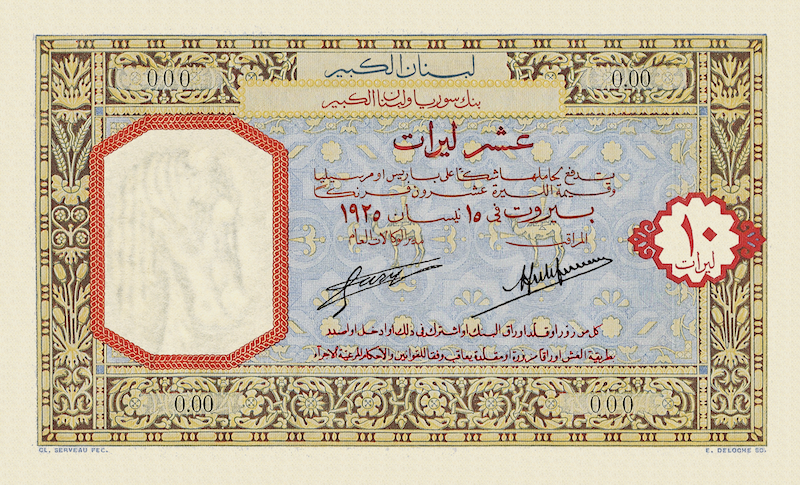 لبنان الكبير
000 0.00
بنك سوريا ولبنان الكبير
عشر ليرات
يدفع لحاملها شكا على باريس او مرسيليا
وقيمة الليرة عشرون فرنك
بيروت في ١٥ نيسان ١٩٢٥
المراقب مدير الوكالات العام
١٠
ليرات
كل من زور او قلد اوراق البنك او اشترك في ذلك او ادخل او اصدر
بطريقة الغش اوراقا مزورة او مقلدة يعاقب وفقا للقوانين والاحكام المرعية الاجراء
0.00 000
CL. SERVEAU FEC. E. DELOCHE SC.